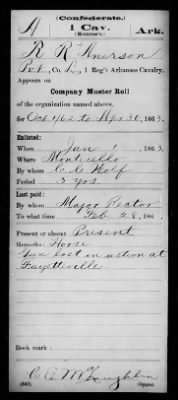 A
(Confederate.)
1 Cav.
(Monroe's.)
Ark.
R R Anerson
Pvt., Co. L, 1 Reg't Arkansas Cavalry.
Appears on
Company Muster Roll
of the organization named above,
for Oct 1/62 to Apr 30, 1863.
Enlisted:
When Jan 1, 1863.
Where Monticello
By whom C. C. Wolf
Period 3 yrs
Last paid:
By whom Major Rector
To what time Feb 28, 186
Present or absent Present
Remarks: Horse
Gun lost in action at
Fayetteville.
Book mark:
C. A. McLaughlin
(642)
Copyist.